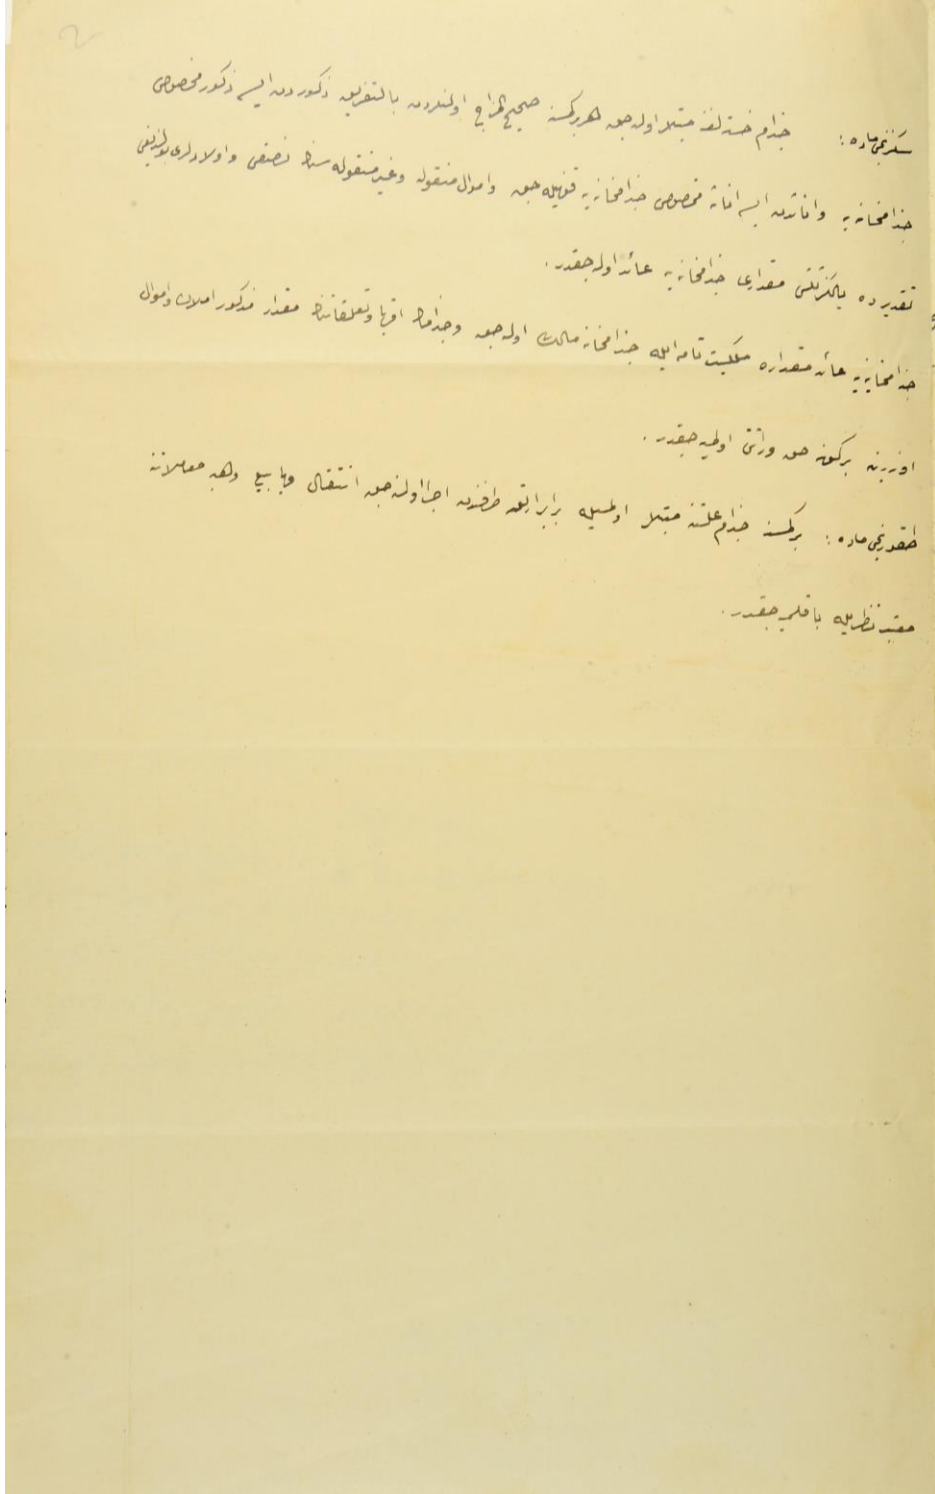 سكزنجی ماده : جذام خسته‌لغنه مبتلا اوله‌جق هر بر كمسنه صحیح المزاج اولنلردن بالتفریق ذكوردن ایسه ذكور مخصوص
جذامخانه‌یه و اناثدن ایسه اناثه مخصوص جذامخانه‌یه قونیله‌جق و اموال منقوله و غیر منقوله‌سنك نصفی و اولادلری بولندیغی
تقدیرده یالكز ثلثی مقداری جذامخانه‌یه عائد اوله‌جقدر .
جذامخانه‌یه عائد مقداره ملكیت تامه ایله جذامخانه مالك اوله‌جق و جذاملك اقربا و تعلقاتنك مقدار مذكور املاك و اموال
اوزرینه بر كونه حق وراثتی اولمیه‌جقدر .
طقوزنجی ماده : بر كمسنه جذام علتنه مبتلا اولمسیله برابر آرتق طرفندن اجرا اولنه‌جق انتقال ویا بیع و هبه معاملاتنه
معتبر نظریله باقلمیه‌جقدر .